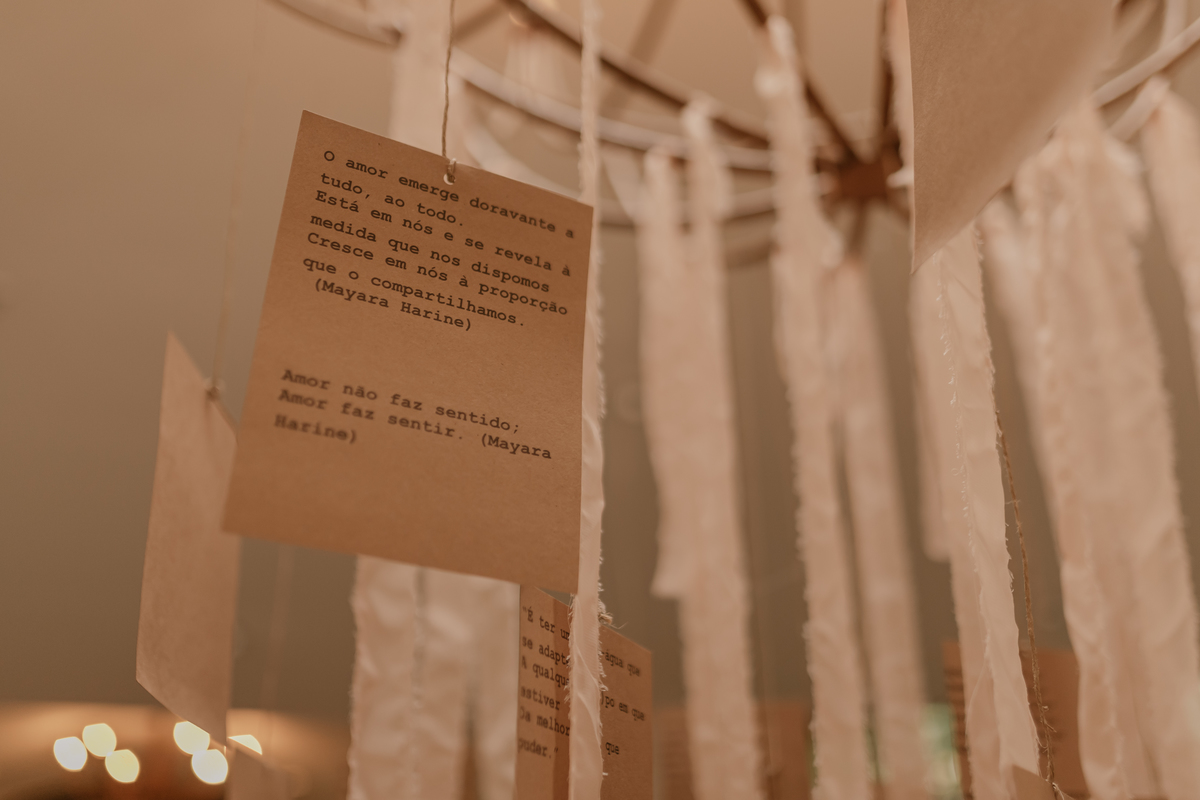 O amor emerge doravante a
tudo, ao todo.
Está em nós e se revela à
medida que nos dispomos
Cresce em nós à proporção
que o compartilhamos.
(Mayara Harine)
Amor não faz sentido;
Amor faz sentir. (Mayara
Harine)
"É ter água que
se
A po em que
estiver
Da melhor que
puder."